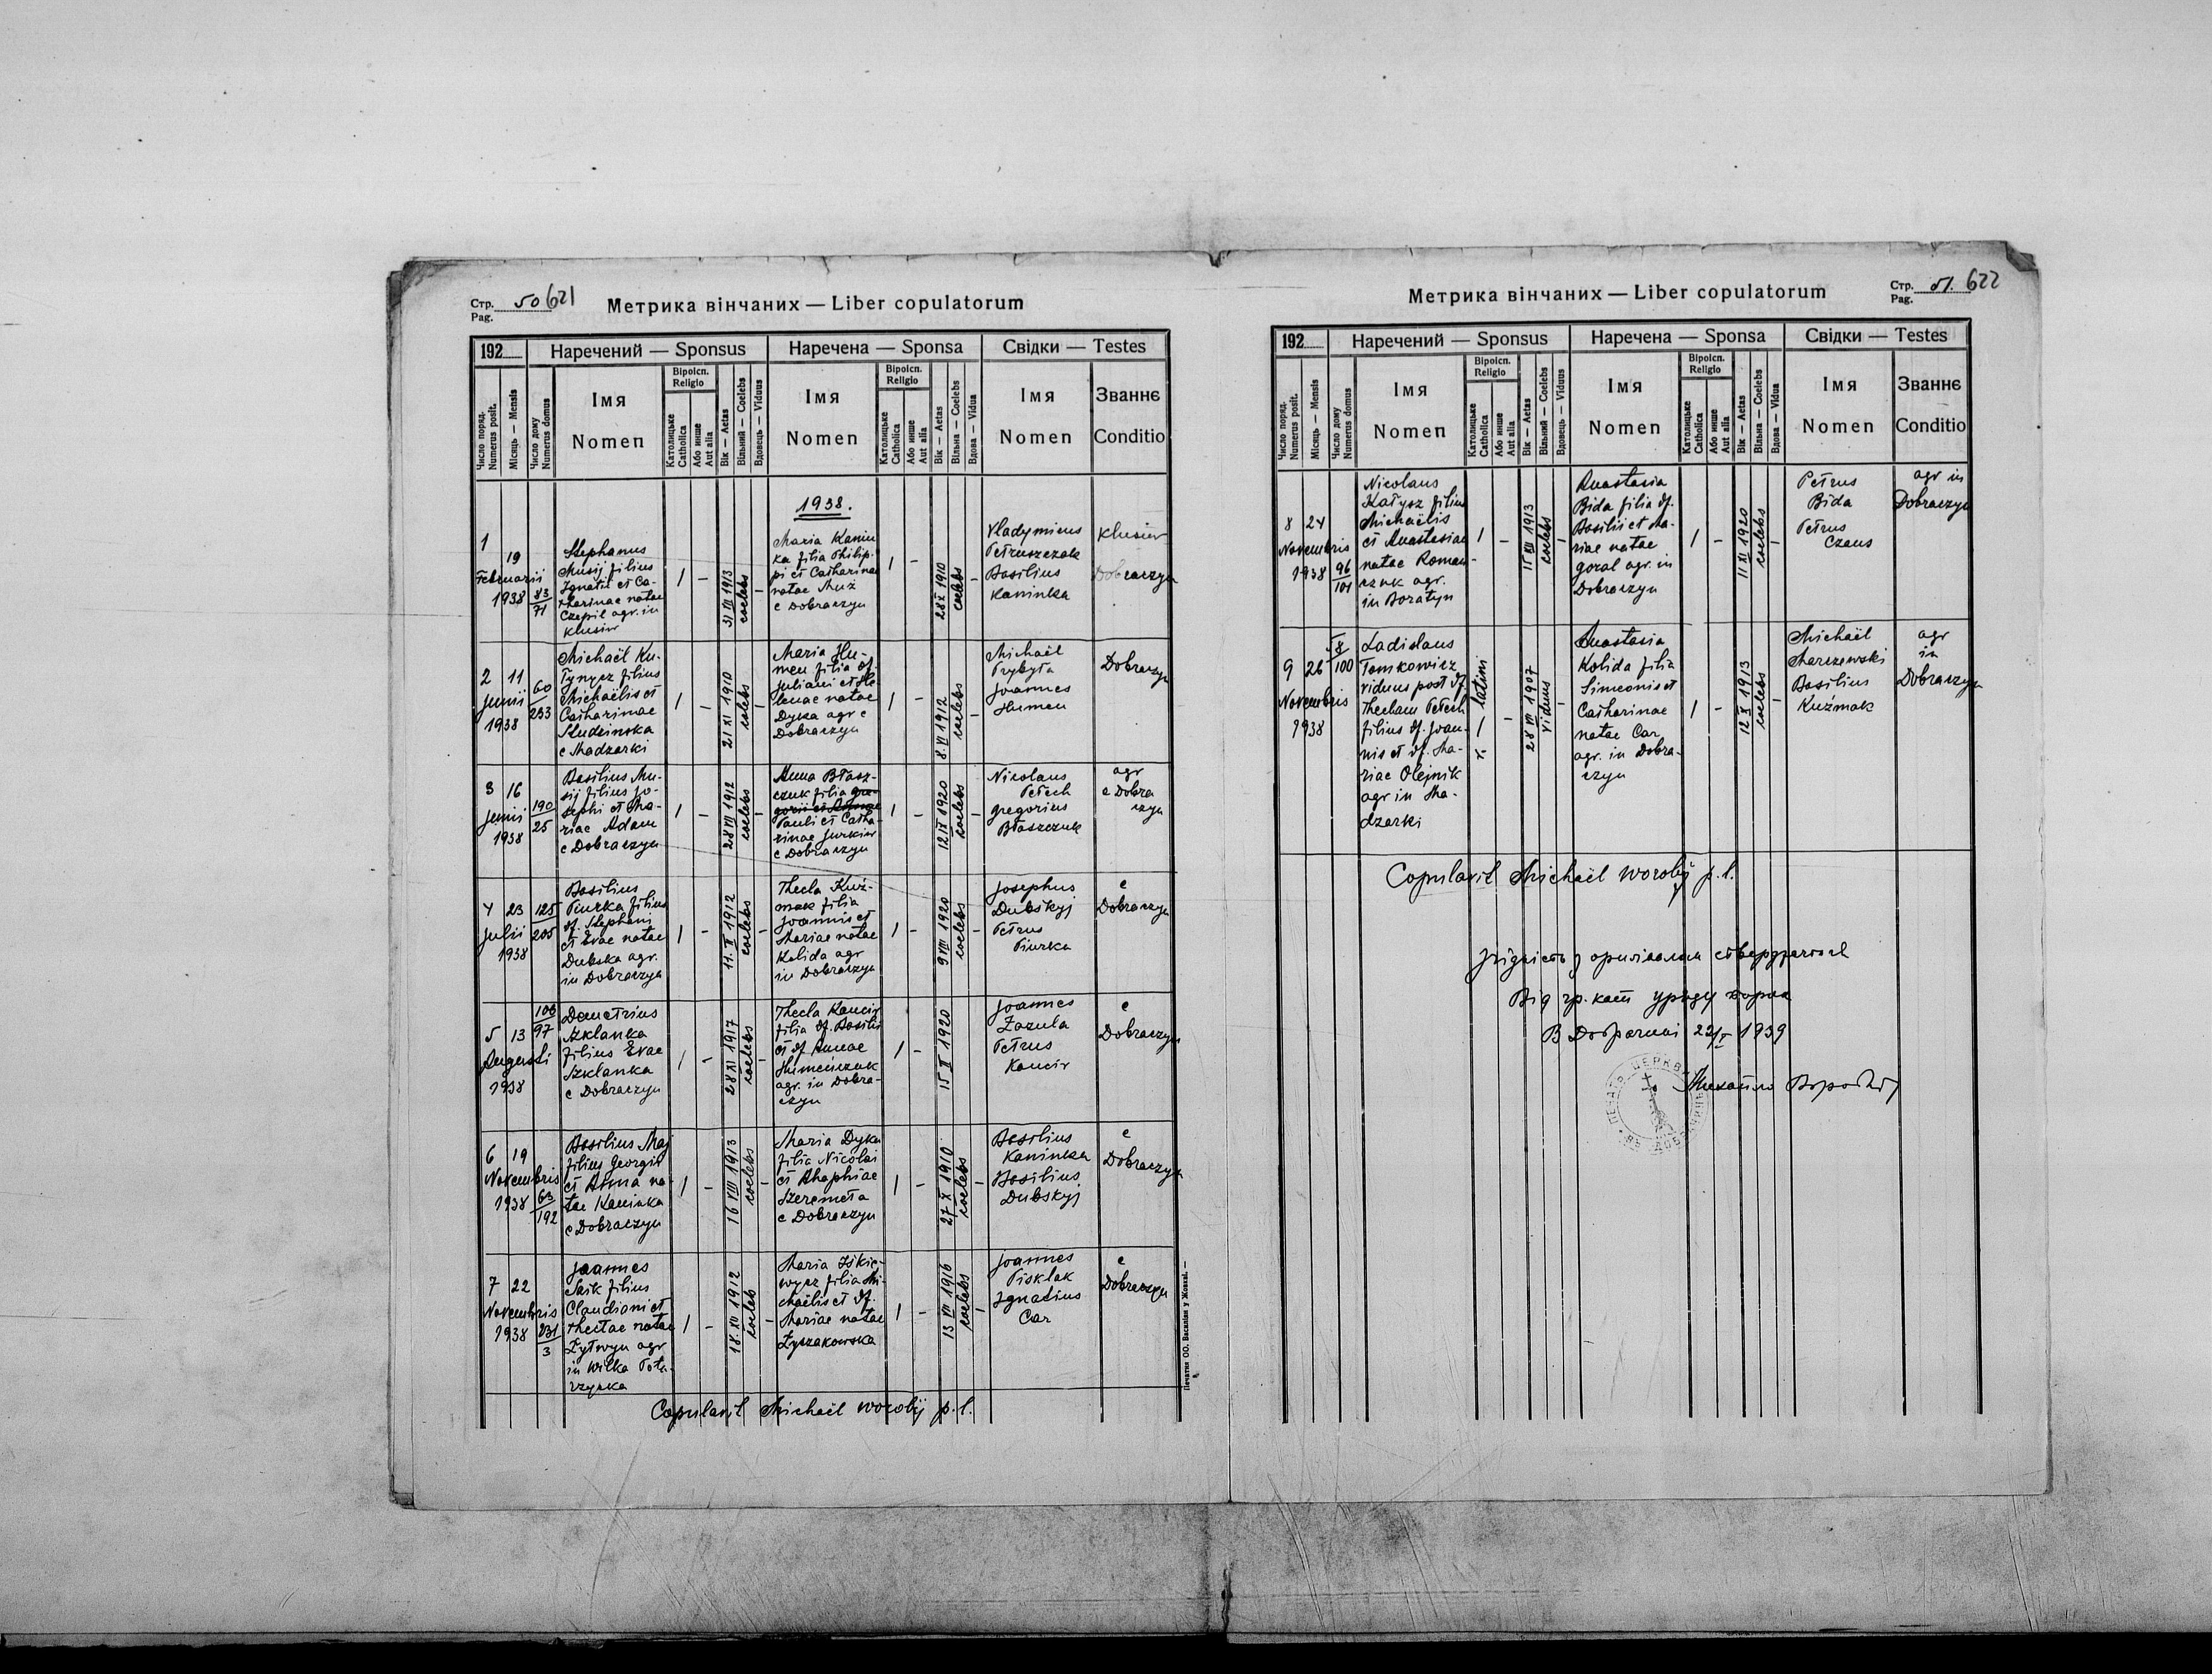 Стр. 50 621
Pag.
Метрика вінчаних — Liber copulatorum
192
Наречений — Sponsus
Наречена — Sponsa
Свідки — Testes
Число поряд.
Numerus posit.
Місяць — Mensis
Число дому
Numerus domus
Імя
Nomen
Віроісп.
Religio
Католицьке
Catholica
Або инше
Aut alia
Вік — Aetas
Вільний — Coelebs
Вдовець — Viduus
Імя
Nomen
Віроісп.
Religio
Католицьке
Catholica
Або инше
Aut alia
Вік — Aetas
Вільна — Coelebs
Вдова — Vidua
Імя
Nomen
Званнє
Conditio
1938.
1
19
Februarii
1938
83
71
Stephanus
Musij filius
Ignatii et Ca-
tharinae natae
Czepil agr. in
Klusiw
1 —
31 VII 1913
coelebs
—
Maria Kamin-
ka filia Philip-
pi et Catharinae
natae Muz
e Dobraczyn
1 —
28 X 1910
coelebs
—
Vladymirus
Petruszczak
Basilius
Kaminka
Klusiw
Dobraczyn
2 11
Junii
1938
60
233
Michaël Ku-
Tynycz filius
Michaëlis et
Catharinae
Studzinska
e Madzarki
1 —
21 XI 1910
coelebs
—
Maria Hu-
men filia df.
Juliani et He-
lenae natae
Dyka agr e
Dobraczyn
1 —
8 VI 1912
coelebs
—
Michaël
Prybyła
Joannes
Humen
Dobraczyn
3 16
Junii
1938
190
25
Basilius Mu-
sij filius Jo-
sephi et Ma-
riae Adam
e Dobraczyn
1 —
28 VIII 1912
coelebs
—
Anna Błasz-
czuk filia Gre-
gorii et
Pauli et Catha-
rinae Jurkiw
e Dobraczyn
1 —
12 IV 1920
coelebs
—
Nicolaus
Petech
Gregorius
Błaszczuk
agr
e Dobra
czyn
4 23
Julii
1938
125
205
Basilius
Piurka filius
df. Stephani
et Evae natae
Dubska agr.
in Dobraczyn
1 —
11. II 1912
coelebs
—
Thecla Kuź-
mak filia
Joannis et
Mariae natae
Kolida agr
in Dobraczyn
1 —
9 VIII 1920
coelebs
—
Josephus
Dubskyj
Petrus
Piurka
e
Dobraczyn
5 13
Augusti
1938
106
97
Demetrius
Szklanka
filius Evae
Szklanka
e Dobraczyn
1 —
28 XI 1917
coelebs
—
Thecla Kaucir
filia df. Basilii
et df Annae
Humeńczuk
agr. in Dobra-
czyn
1 —
15 X 1920
Joannes
Zazula
Petrus
Kaucir
e
Dobraczyn
6 19
Novembris
1938
63
192
Basilius Maj
filius Georgii
et Anna na-
tae Kaminka
e Dobraczyn
1 —
16 VIII 1913
coelebs
—
Maria Dyka
filia Nicolai
et Ahaphiae
Szeremeta
e Dobraczyn
1 —
27 X 1910
coelebs
—
Basilius
Kaminka
Basilius
Dubskyj
e
Dobraczyn
7 22
Novembris
1938
231
3
Joannes
Saik filius
Claudiani et
Theclae natae
Żytwyn agr
in Wilka Potu-
rzynka
1 —
18 XII 1912
coeleb
—
Maria Iśkie-
wycz filia Mi-
chaëlis et df.
Mariae natae
Łyszakowska
1 —
13 VII 1916
coelebs
1
Joannes
Pisklak
Ignatius
Car
e
Dobraczyn
Copulavit Michaël Worobij p. l.
Печатня ОО. Василіян у Жовкві. —
Стр. 51. 622
Pag.
Метрика вінчаних — Liber copulatorum
192
Наречений — Sponsus
Наречена — Sponsa
Свідки — Testes
Число поряд.
Numerus posit.
Місяць — Mensis
Число дому
Numerus domus
Імя
Nomen
Віроісп.
Religio
Католицьке
Catholica
Або инше
Aut alia
Вік — Aetas
Вільний — Coelebs
Вдовець — Viduus
Імя
Nomen
Віроісп.
Religio
Католицьке
Catholica
Або инше
Aut alia
Вік — Aetas
Вільна — Coelebs
Вдова — Vidua
Імя
Nomen
Званнє
Conditio
8 24
Novembris
1938
96
101
Nicolaus
Katycz filius
Michaëlis
et Anastasiae
natae Roman-
czuk agr.
in Boratyn
1 —
15 XII 1913
coelebs
1
Anastasia
Bida filia df.
Basilii et Ma-
riae natae
Goral agr. in
Dobraczyn
1 —
11 XI 1920
coelebs
1
Petrus
Bida
Petrus
Czaus
agr in
Dobraczyn
9 26
Novembris
1938
58
100
Ladislaus
Tomkowicz
viduus post df.
Theclam Petech
filius df. Joan-
nis et df. Ma-
riae Olejnik
agr in Ma-
dzarki
latini
1
r.
—
28 VII 1907
Viduus
—
Anastasia
Kolida filia
Simeonis et
Catharinae
natae Car
agr. in Dobra-
czyn
1 —
12 X 1913
coelebs
1
Michaël
Marczewski
Basilius
Kuźmak
agr
in
Dobraczyn
Copulavit Michaël Worobij p. l.
Згідність з оригіналом стверджується
Від гр. кат уряду парох
В Добрачині 22/I 1939
Михайло Воробій